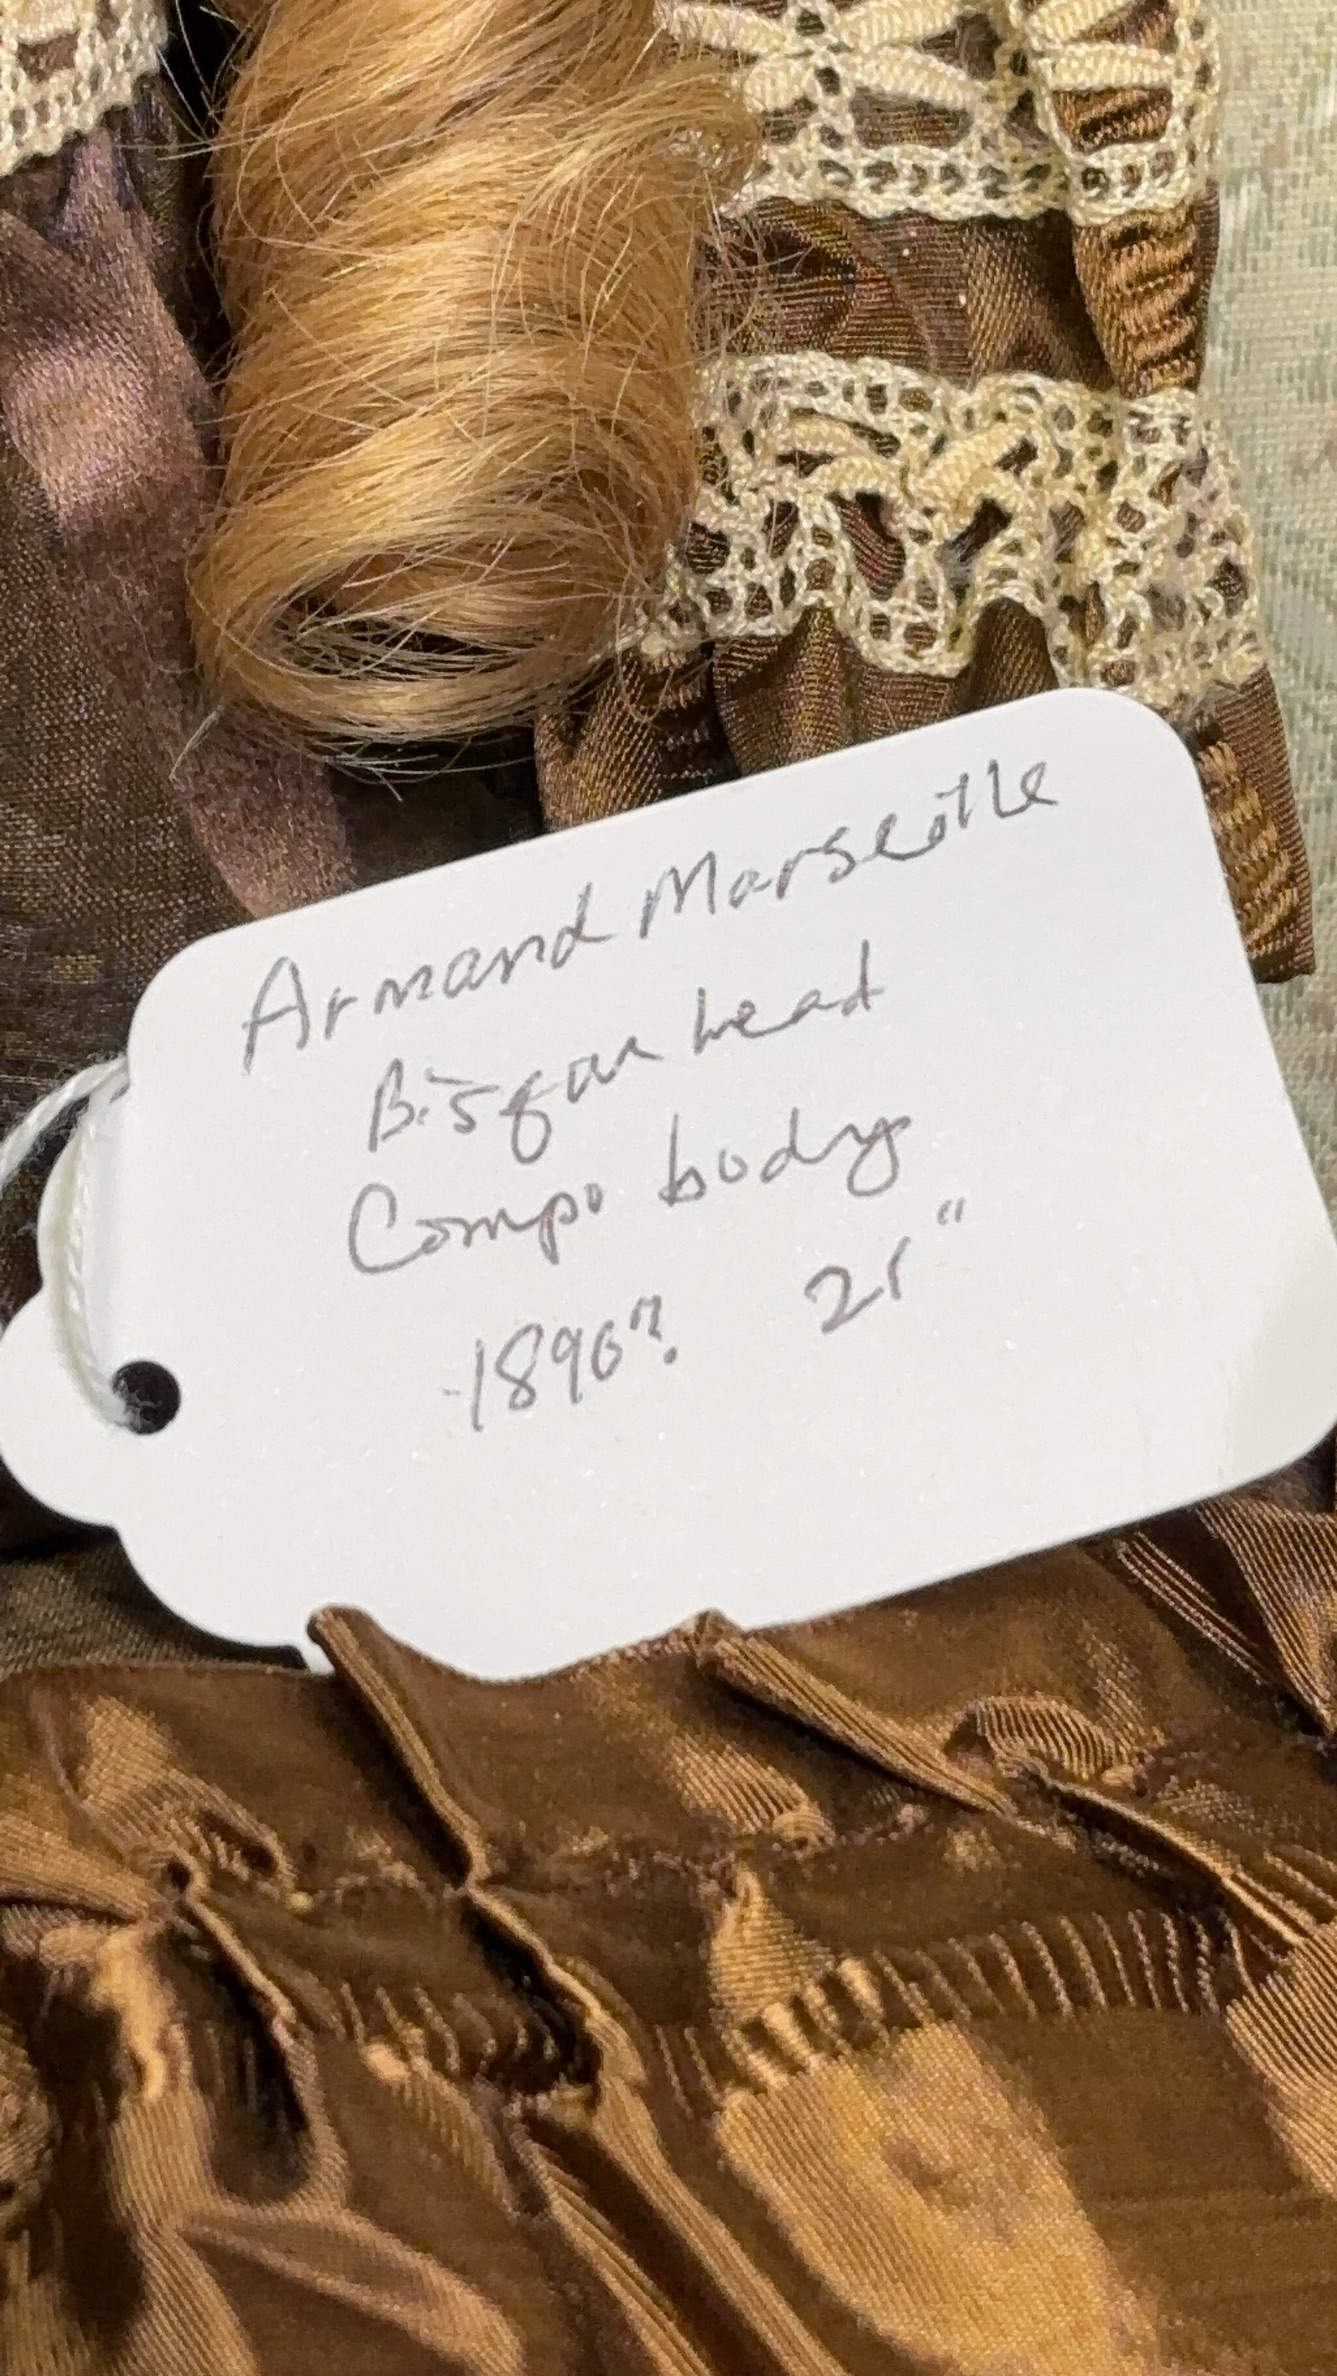 Armand Marseille
Bisque head
Compo body
1890? 21"